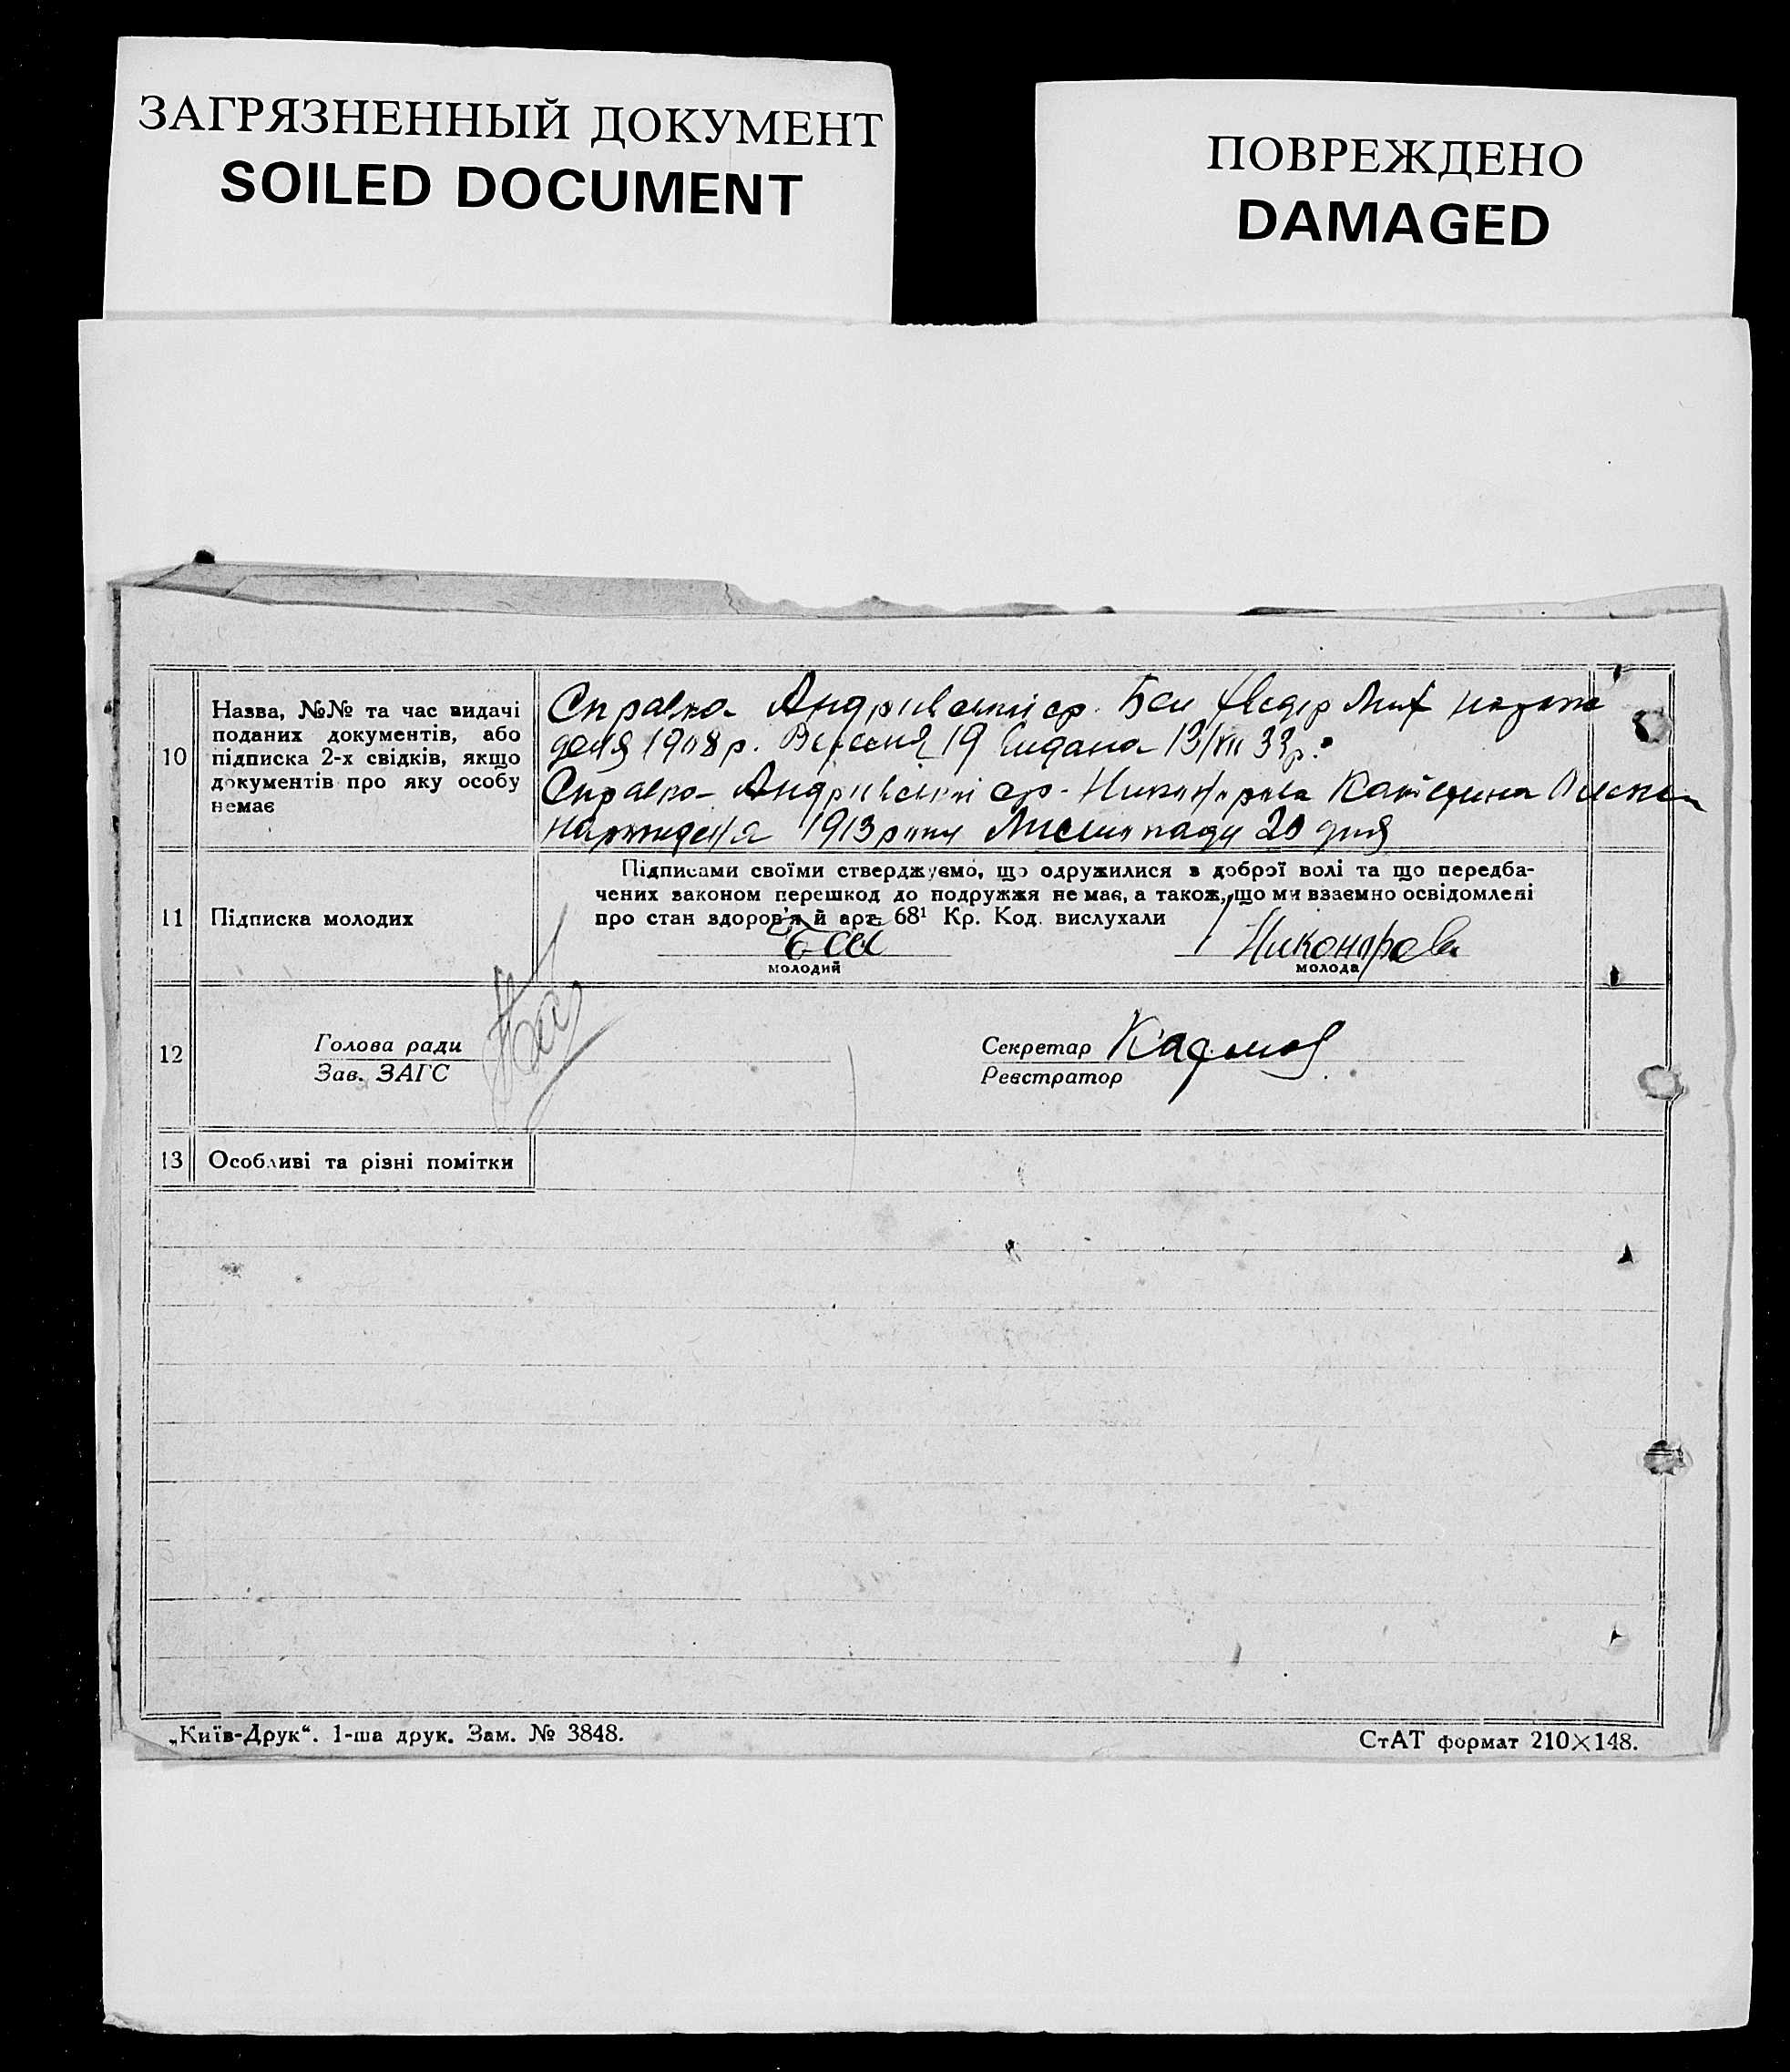 ЗАГРЯЗНЕННЫЙ ДОКУМЕНТ
SOILED DOCUMENT
ПОВРЕЖДЕНО
DAMAGED
10
Назва, №№ та час видачі
поданих документів, або
підписка 2-х свідків, якщо
документів про яку особу
немає
Справка Андриівської ср.
1908 р. Вересня 19 видана 13/VII 33 р.
Справка Андриівської ср. Никонорова Катерина
1913 року Листопада 20 дня
11
Підписка молодих
Підписами своїми стверджуємо, що одружилися з доброї волі та що передба-
чених законом перешкод до подружжя немає, а також, що ми взаємно освідомлені
про стан здоров'я й арт. 68¹ Кр. Код. вислухали
молодий
Никонорова
молода
12
Голова ради
Зав. ЗАГС
Секретар
Реєстратор
13
Особливі та різні помітки
„Київ-Друк“. 1-ша друк. Зам. № 3848.
СтАТ формат 210×148.